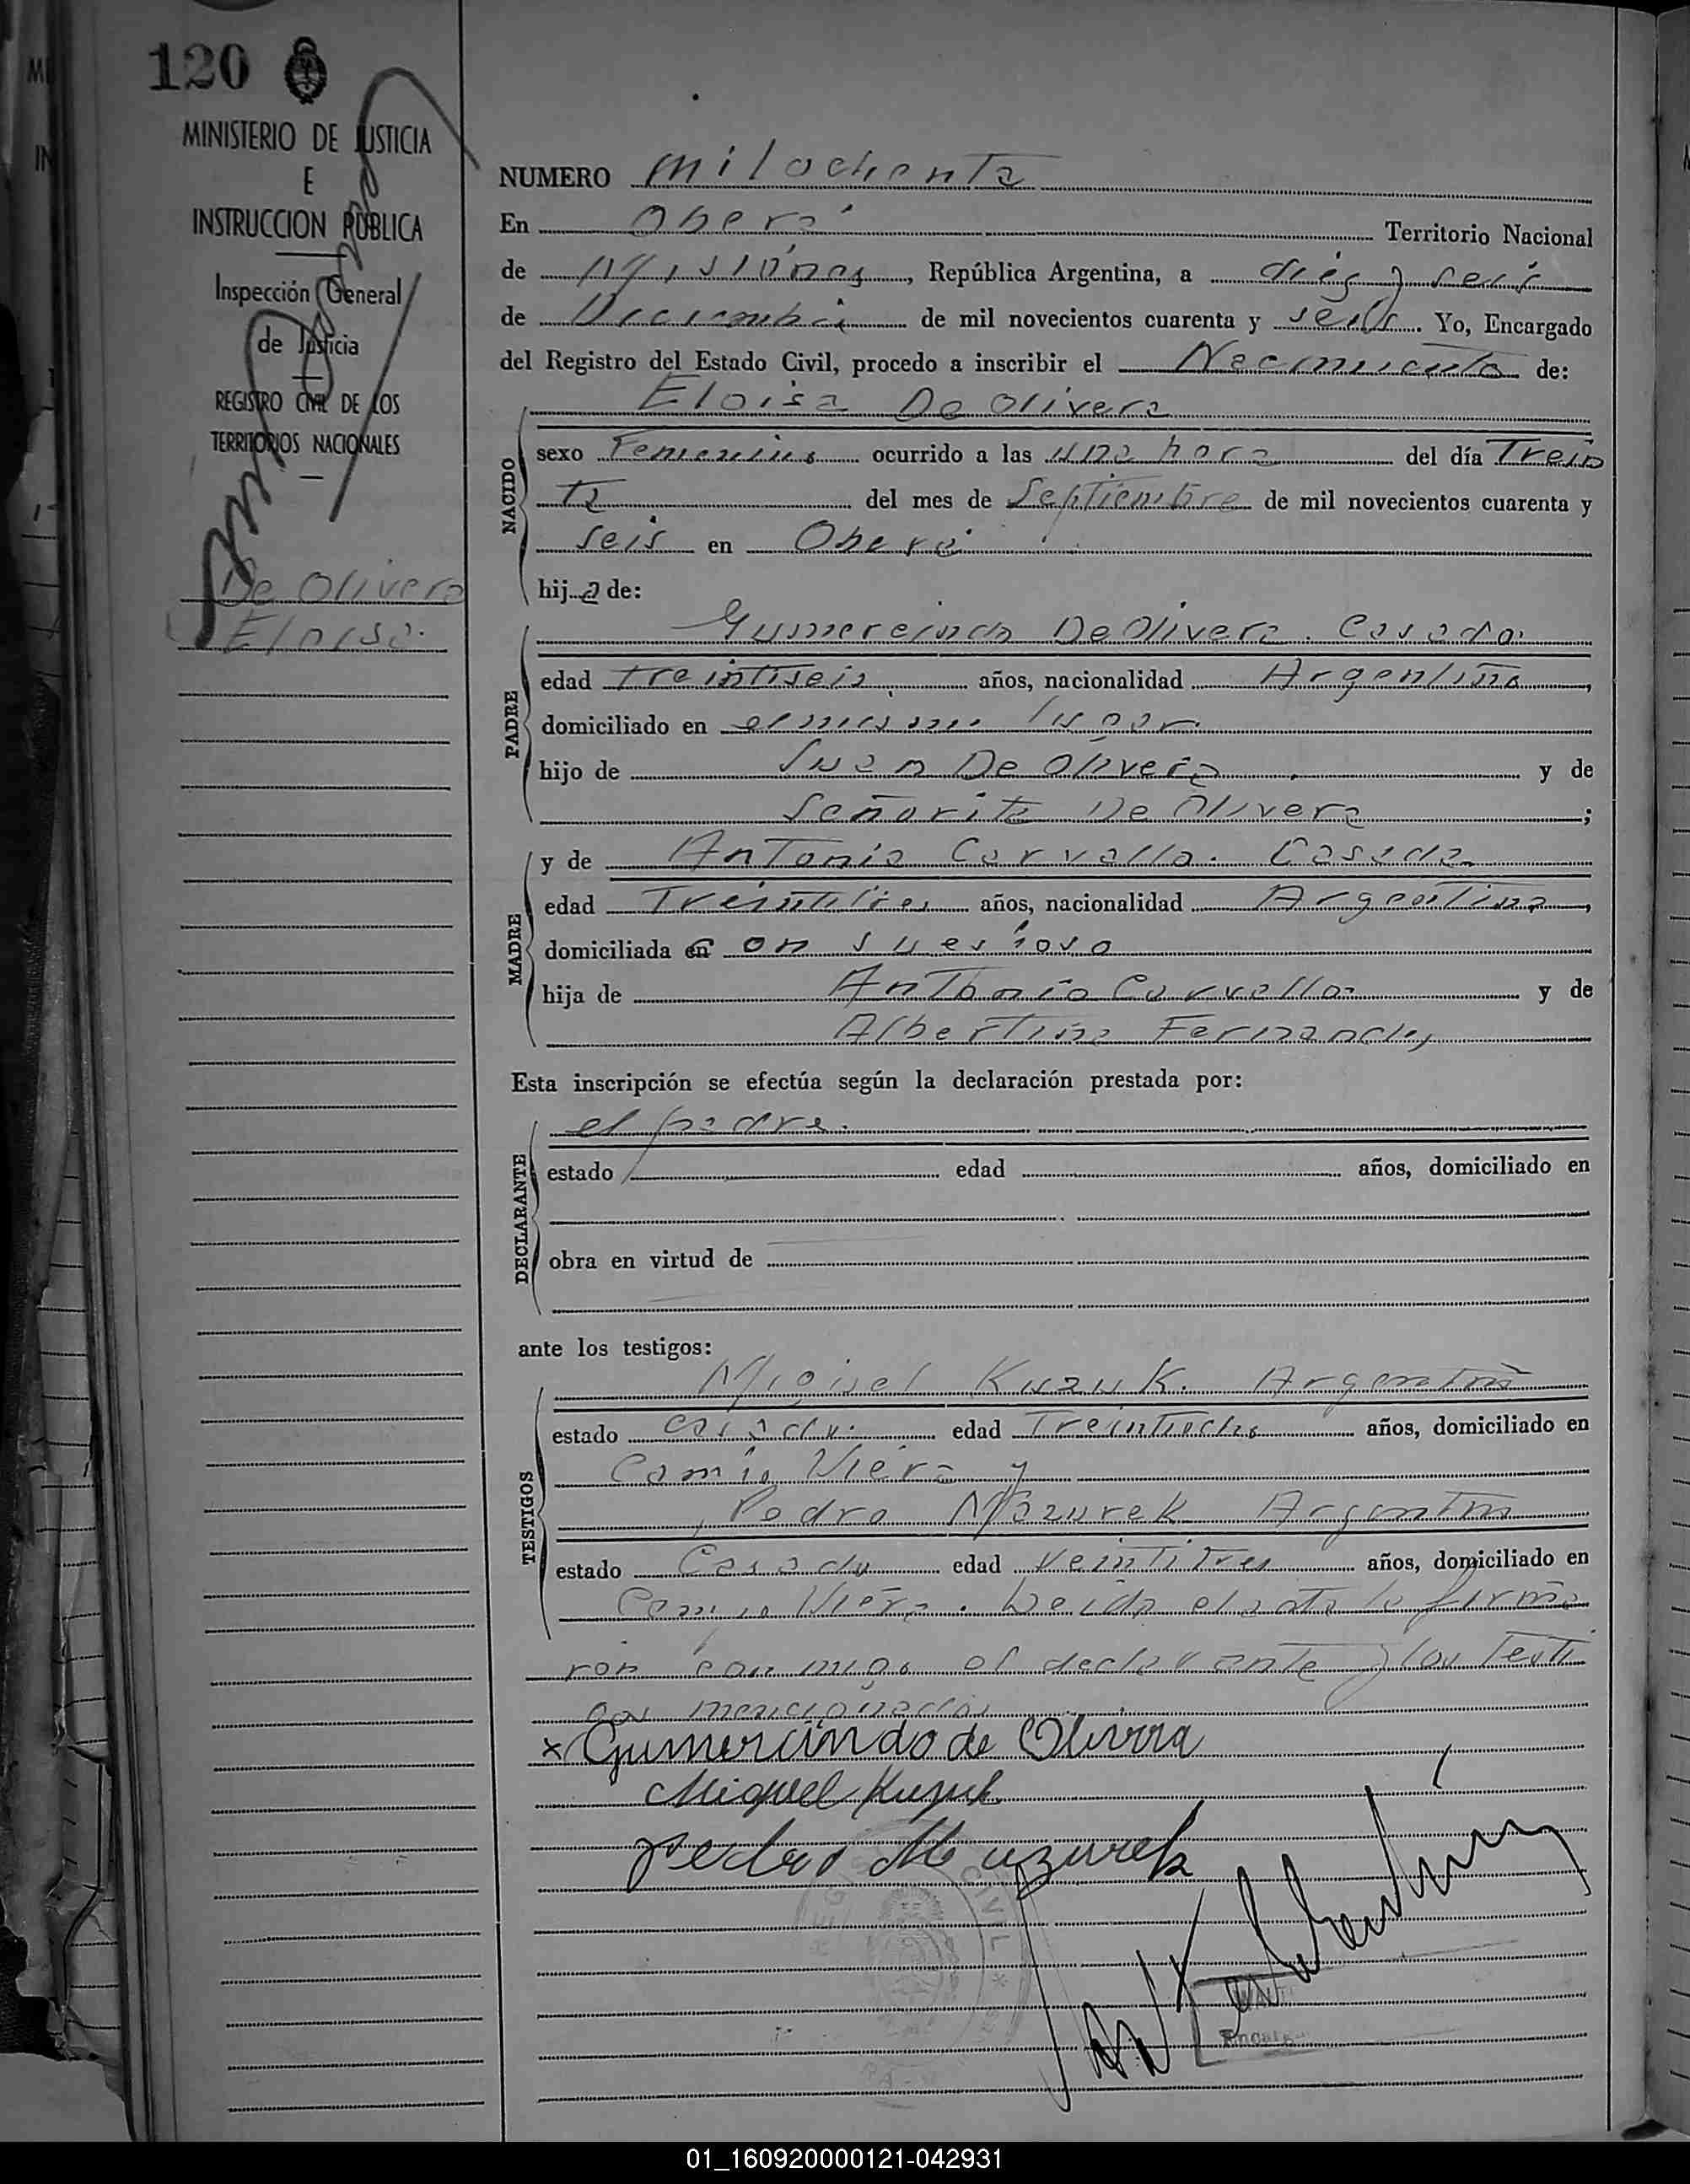 120
MINISTERIO DE JUSTICIA
E
INSTRUCCION PÚBLICA
Inspección General
de Justicia
REGISTRO CIVIL DE LOS
TERRITORIOS NACIONALES
De Olivera
Eloisa.
NUMERO mil ochenta
En Oberá Territorio Nacional
de Misiones, República Argentina, a dies y seis
de Diciembre de mil novecientos cuarenta y seis. Yo, Encargado
del Registro del Estado Civil, procedo a inscribir el Nacimiento de:
Eloisa De Olivera
NACIDO
sexo Femenino ocurrido a las una hora del día Trein
ta del mes de Septiembre de mil novecientos cuarenta y
seis en Oberá
hija de:
PADRE
Gumercindo De Olivera. Casado
edad treintiseis años, nacionalidad Argentino,
domiciliado en el mismo lugar.
hijo de Juan De Olivera y de
Señorita De Olivera;
MADRE
y de Antonia Carvallo. Casada
edad Treintitres años, nacionalidad Argentina,
domiciliada con su esposo
hija de Anthonio Carvallo y de
Albertina Fernandes
Esta inscripción se efectúa según la declaración prestada por:
DECLARANTE
el padre.
estado edad años, domiciliado en
obra en virtud de
ante los testigos:
TESTIGOS
Miguel Kuzuk. Argentino
estado casado. edad Treintiocho años, domiciliado en
Campo Viera y
Pedro Mazurek Argentino
estado Casado edad Veintitres años, domiciliado en
Campo Viera. Leida el acta la firma
ron conmigo el declarante y los testi
gos mencionados
x Gumercindo de Olivera
Miguel Kuzuk
Pedro Mazurek
CIVIL
01_160920000121-042931